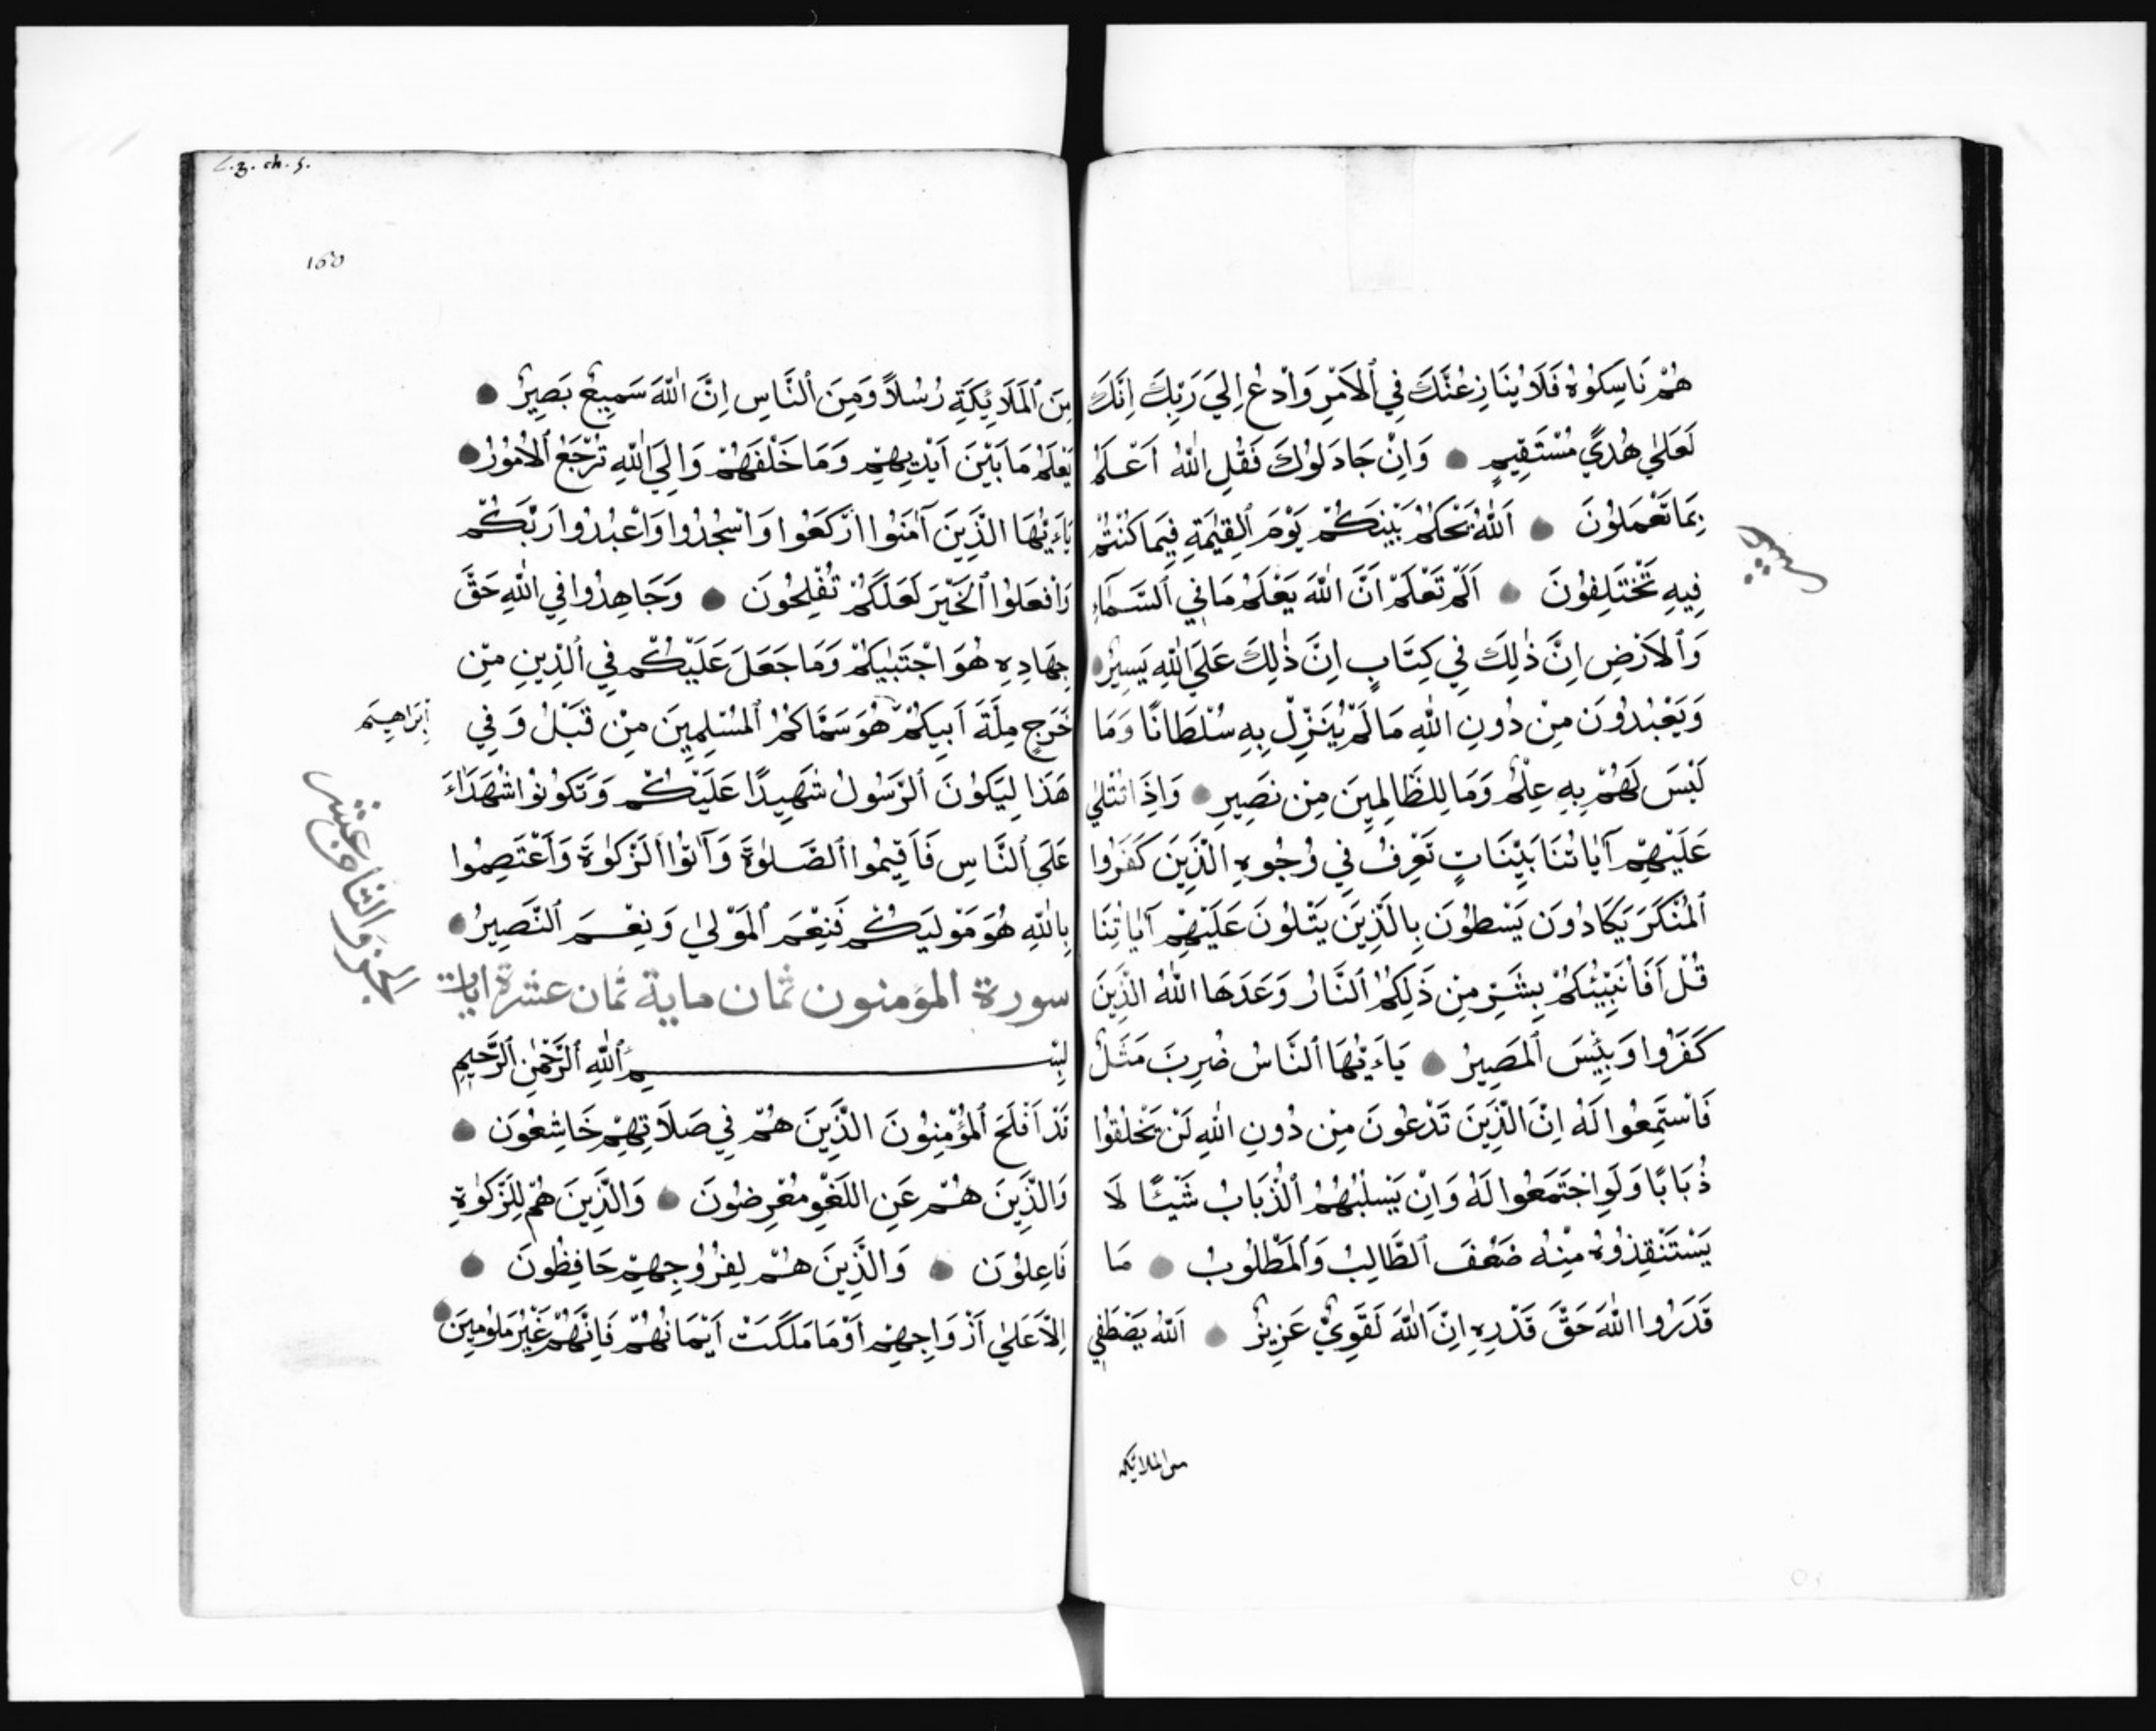 هُمْ نَاسِكُوهُ فَلَا يُنَازِعُنَّكَ فِي ٱلْأَمْرِ وَادْعُ اِلَىٰ رَبِّكَ اِنَّكَ
لَعَلَىٰ هُدًى مُسْتَقِيمٍ وَاِنْ جَادَلُوكَ فَقُلِ اللّٰهُ اَعْلَمُ
بِمَا تَعْمَلُونَ اَللّٰهُ يَحْكُمُ بَيْنَكُمْ يَوْمَ ٱلْقِيٰمَةِ فِيمَا كُنْتُمْ
فِيهِ تَخْتَلِفُونَ اَلَمْ تَعْلَمْ اَنَّ اللّٰهَ يَعْلَمُ مَا فِي ٱلسَّمَآءِ
وَٱلْاَرْضِ اِنَّ ذٰلِكَ فِي كِتَابٍ اِنَّ ذٰلِكَ عَلَى اللّٰهِ يَسِيرٌ
وَيَعْبُدُونَ مِنْ دُونِ اللّٰهِ مَا لَمْ يُنَزِّلْ بِهِ سُلْطَانًا وَمَا
لَيْسَ لَهُمْ بِهِ عِلْمٌ وَمَا لِلظَّالِمِينَ مِنْ نَصِيرٍ وَاِذَا تُتْلىٰ
عَلَيْهِمْ آيَاتُنَا بَيِّنَاتٍ تَعْرِفُ فِي وُجُوهِ الَّذِينَ كَفَرُوا
ٱلْمُنْكَرَ يَكَادُونَ يَسْطُونَ بِالَّذِينَ يَتْلُونَ عَلَيْهِمْ آيَاتِنَا
قُلْ اَفَاُنَبِّئُكُمْ بِشَرٍّ مِنْ ذَلِكُمُ ٱلنَّارُ وَعَدَهَا اللّٰهُ الَّذِينَ
كَفَرُوا وَبِئْسَ ٱلْمَصِيرُ يَاءَيُّهَا ٱلنَّاسُ ضُرِبَ مَثَلٌ
فَاسْتَمِعُوا لَهُ اِنَّ الَّذِينَ تَدْعُونَ مِنْ دُونِ اللّٰهِ لَنْ يَخْلُقُوا
ذُبَابًا وَلَوِ اجْتَمَعُوا لَهُ وَاِنْ يَسْلُبْهُمُ ٱلذُّبَابُ شَيْـًٔا لَا
يَسْتَنْقِذُوهُ مِنْهُ ضَعُفَ ٱلطَّالِبُ وَٱلْمَطْلُوبُ مَا
قَدَرُوا اللّٰهَ حَقَّ قَدْرِهِ اِنَّ اللّٰهَ لَقَوِيٌّ عَزِيزٌ اَللّٰهُ يَصْطَفِي
من الملائكة
L.z. ch. s.
مِنَ ٱلْمَلَائِكَةِ رُسُلًا وَمِنَ ٱلنَّاسِ اِنَّ اللّٰهَ سَمِيعٌ بَصِيرٌ
يَعْلَمُ مَا بَيْنَ اَيْدِيهِمْ وَمَا خَلْفَهُمْ وَاِلَى اللّٰهِ تُرْجَعُ ٱلْاُمُورُ
يَاءَيُّهَا الَّذِينَ آمَنُوا ارْكَعُوا وَاسْجُدُوا وَاعْبُدُوا رَبَّكُمْ
وَافْعَلُوا ٱلْخَيْرَ لَعَلَّكُمْ تُفْلِحُونَ وَجَاهِدُوا فِي اللّٰهِ حَقَّ
جِهَادِهِ هُوَ اجْتَبٰيكُمْ وَمَا جَعَلَ عَلَيْكُمْ فِي ٱلدِّينِ مِنْ
حَرَجٍ مِلَّةَ اَبِيكُمْ هُوَ سَمَّاكُمُ ٱلْمُسْلِمِينَ مِنْ قَبْلُ وَفِي
اِبْرَاهِيمَ
هَذَا لِيَكُونَ ٱلرَّسُولُ شَهِيدًا عَلَيْكُمْ وَتَكُونُوا شُهَدَاءَ
عَلَى ٱلنَّاسِ فَاَقِيمُوا ٱلصَّلٰوةَ وَآتُوا ٱلزَّكٰوةَ وَٱعْتَصِمُوا
بِاللّٰهِ هُوَ مَوْلٰيكُمْ فَنِعْمَ ٱلْمَوْلىٰ وَنِعْمَ ٱلنَّصِيرُ
الجزو الثامن عشر
سورة المؤمنون ثمان ماية ثمان عشرة ايات
بِسْمِ ٱللّٰهِ ٱلرَّحْمٰنِ ٱلرَّحِيمِ
قَدْ اَفْلَحَ ٱلْمُؤْمِنُونَ الَّذِينَ هُمْ فِي صَلَاتِهِمْ خَاشِعُونَ
وَالَّذِينَ هُمْ عَنِ اللَّغْوِ مُعْرِضُونَ وَالَّذِينَ هُمْ لِلزَّكٰوةِ
فَاعِلُونَ وَالَّذِينَ هُمْ لِفُرُوجِهِمْ حَافِظُونَ
اِلَّا عَلىٰ اَزْوَاجِهِمْ اَوْمَا مَلَكَتْ اَيْمَانُهُمْ فَاِنَّهُمْ غَيْرُ مَلُومِينَ